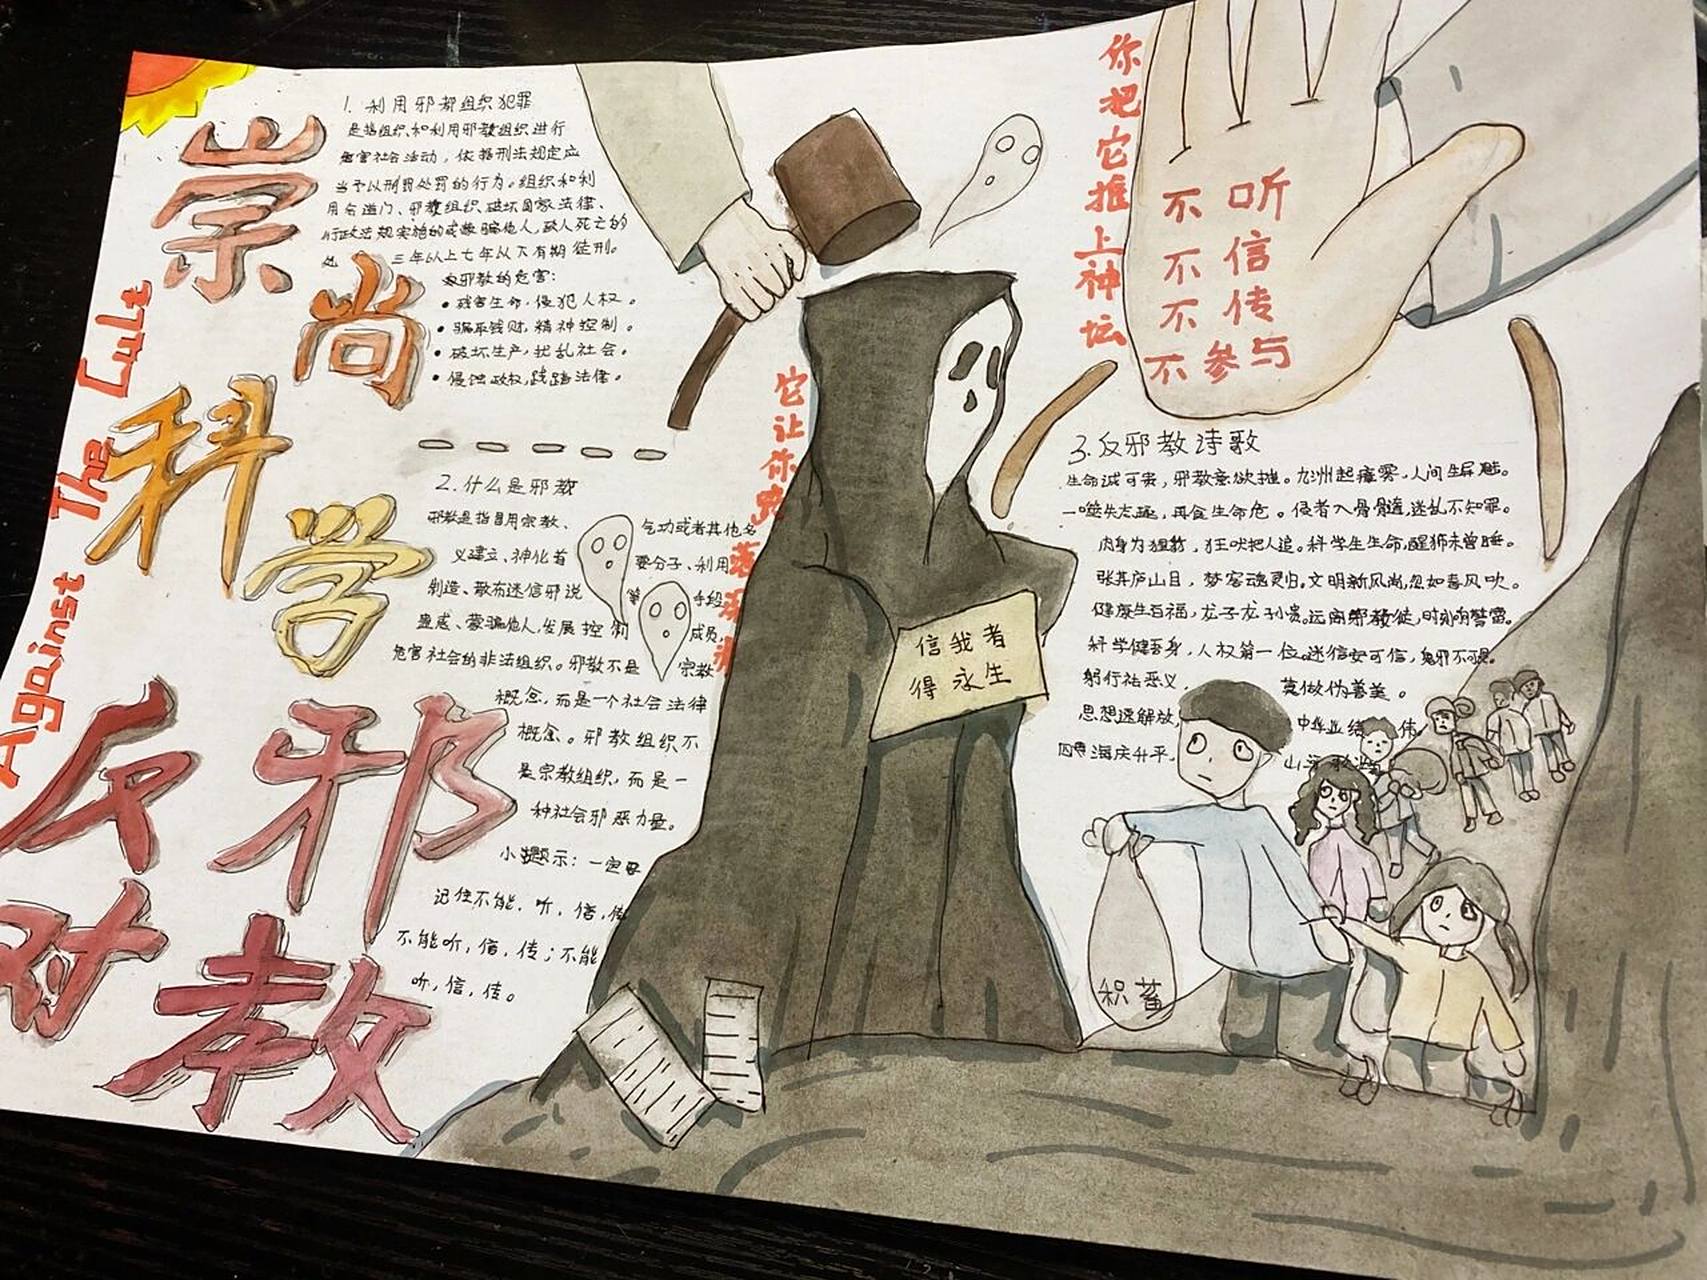 崇尚
科学
反邪
对教
Against The Cult
1. 利用邪教组织犯罪
是指组织、和利用邪教组织、进行
危害社会活动，依据刑法规定应
当予以刑罚处罚的行为。组织和利
用会道门、邪教组织、破坏国家法律、
行政法规实施的或欺骗他人，致人死亡的
处 三年以上七年以下有期徒刑。
邪教的危害：
• 残害生命，侵犯人权。
• 骗取钱财，精神控制。
• 破坏生产，扰乱社会。
• 侵蚀政权，践踏法律。
2. 什么是邪教
邪教是指冒用宗教、 气功或者其他名
义建立、神化首 要分子、利用
制造、散布迷信邪说 等 手段
蛊惑、蒙骗他人，发展控制 成员，
危害社会的非法组织。邪教不是 宗教
概念，而是一个社会法律
概念。邪教组织不
是宗教组织，而是一
种社会邪恶力量。
小提示：一定要
记住不能，听，信，传
不能听，信，传；不能
听，信，传。
它让你
落
你把它推上神坛
信我者
得永生
不听
不信
不传
不参与
3. 反邪教诗歌
生命诚可贵，邪教竟欲摧。九洲起瘟雾，人间生屏魅。
一噬失志趣，再食生命危。侵者入骨髓，迷乱不知罪。
肉身为狙豺，狂吠把人追。科学生生命，醒狮未曾睡。
张其庐山目，梦客魂灵归。文明新风尚，忽如春风吹。
健康生百福，龙子龙孙贵。远离邪教徒，时刻响警雷。
科学健吾身，人权第一位。迷信安可信，鬼邪不跟。
躬行祛恶义， 莫做伪善美。
思想速解放， 中华业绩伟
四海庆升平， 山
积蓄